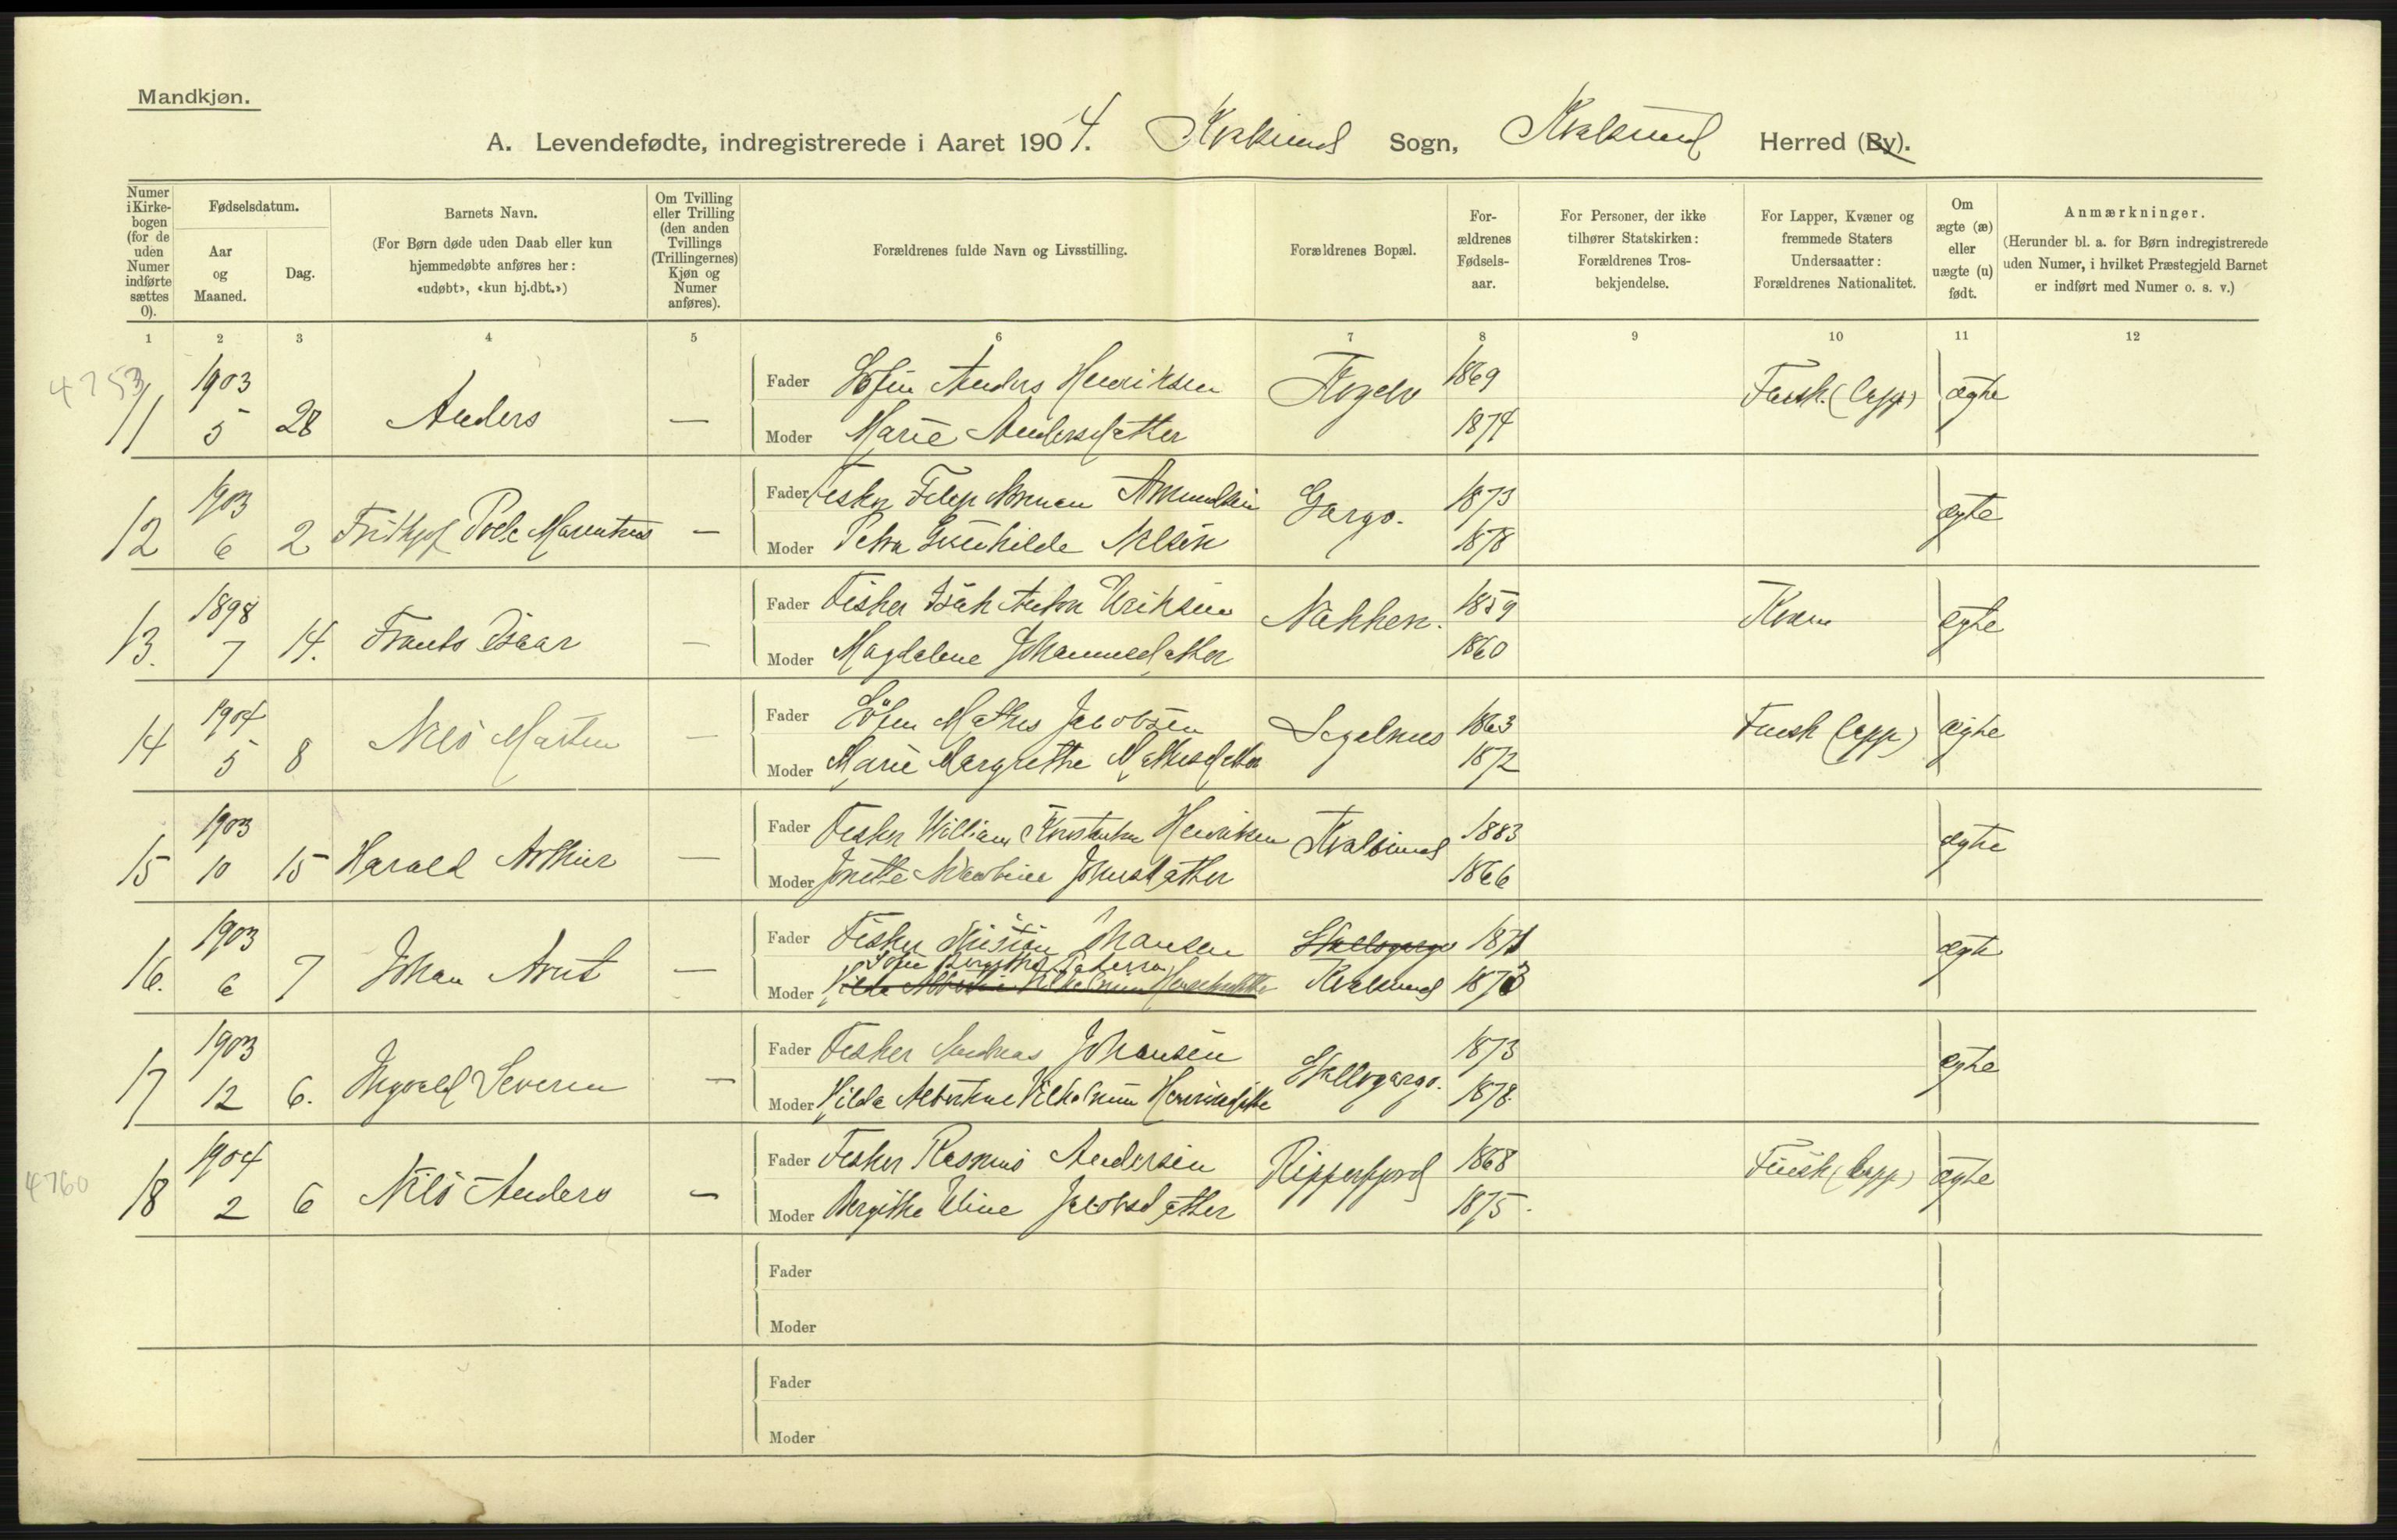 Mandkjøn.
A. Levendefødte, indregistrerede i Aaret 1904. Kvalsund Sogn, Kvalsund Herred (By).
Numer i Kirke-bogen (for de uden Numer indførte sættes 0).
Fødselsdatum.
Aar og Maaned.
Dag.
Barnets Navn.
(For Børn døde uden Daab eller kun hjemmedøbte anføres her: «udøbt», «kun hj.dbt.»)
Om Tvilling eller Trilling (den anden Tvillings (Trillingernes) Kjøn og Numer anføres).
Forældrenes fulde Navn og Livsstilling.
Forældrenes Bopæl.
For-ældrenes Fødsels-aar.
For Personer, der ikke tilhører Statskirken: Forældrenes Tros-bekjendelse.
For Lapper, Kvæner og fremmede Staters Undersaatter: Forældrenes Nationalitet.
Om ægte (æ) eller uægte (u) født.
Anmærkninger.
(Herunder bl. a. for Børn indregistrerede uden Numer, i hvilket Præstegjeld Barnet er indført med Numer o. s. v.)
1 2 3 4 5 6 7 8 9 10 11 12
4753
11 1903 5 28 Anders — Fader Anders Henriksen 1869 Finsk (lapp) ægte
Moder Marie Andersdatter 1874
12 1903 6 2 Frithjof — Fader Fisker Amundsen Gargo. 1873 ægte
Moder Petra Gunhilde Nilsen 1878
13. 1898 7 14. Frants Isaar — Fader Fisker Isak Anton Eriksen Nakken. 1859 Kvæn ægte
Moder Magdalene Johannesdatter 1860
14 1904 5 8 Nils Marten — Fader Mathis Jacobsen Segelnes 1863 Finsk (lapp) ægte
Moder Marie Margrethe Mathisdatter 1872
15 1903 10 15 Harald Arthur — Fader Fisker William Henriksen Kvalsund 1883 ægte
Moder Johnsdatter 1866
16. 1903 6 7 Johan Arnt — Fader Fisker Johansen Skallogargo 1871 ægte
Sofie Bergithe Pedersen
Moder Hilda Vilhelmine Kvalsund 1873
17 1903 12 6. Ingvald Severin — Fader Fisker Andreas Johansen Skallogargo. 1873 ægte
Moder Hilda Albertine Vilhelmine Henriksdatter 1878
4760
18 1904 2 6 Nils Anders — Fader Fisker Rasmus Andersen Repperfjord 1868 Finsk (lapp) ægte
Moder Bergithe Eline Jacobsdatter 1875.
Fader
Moder
Fader
Moder